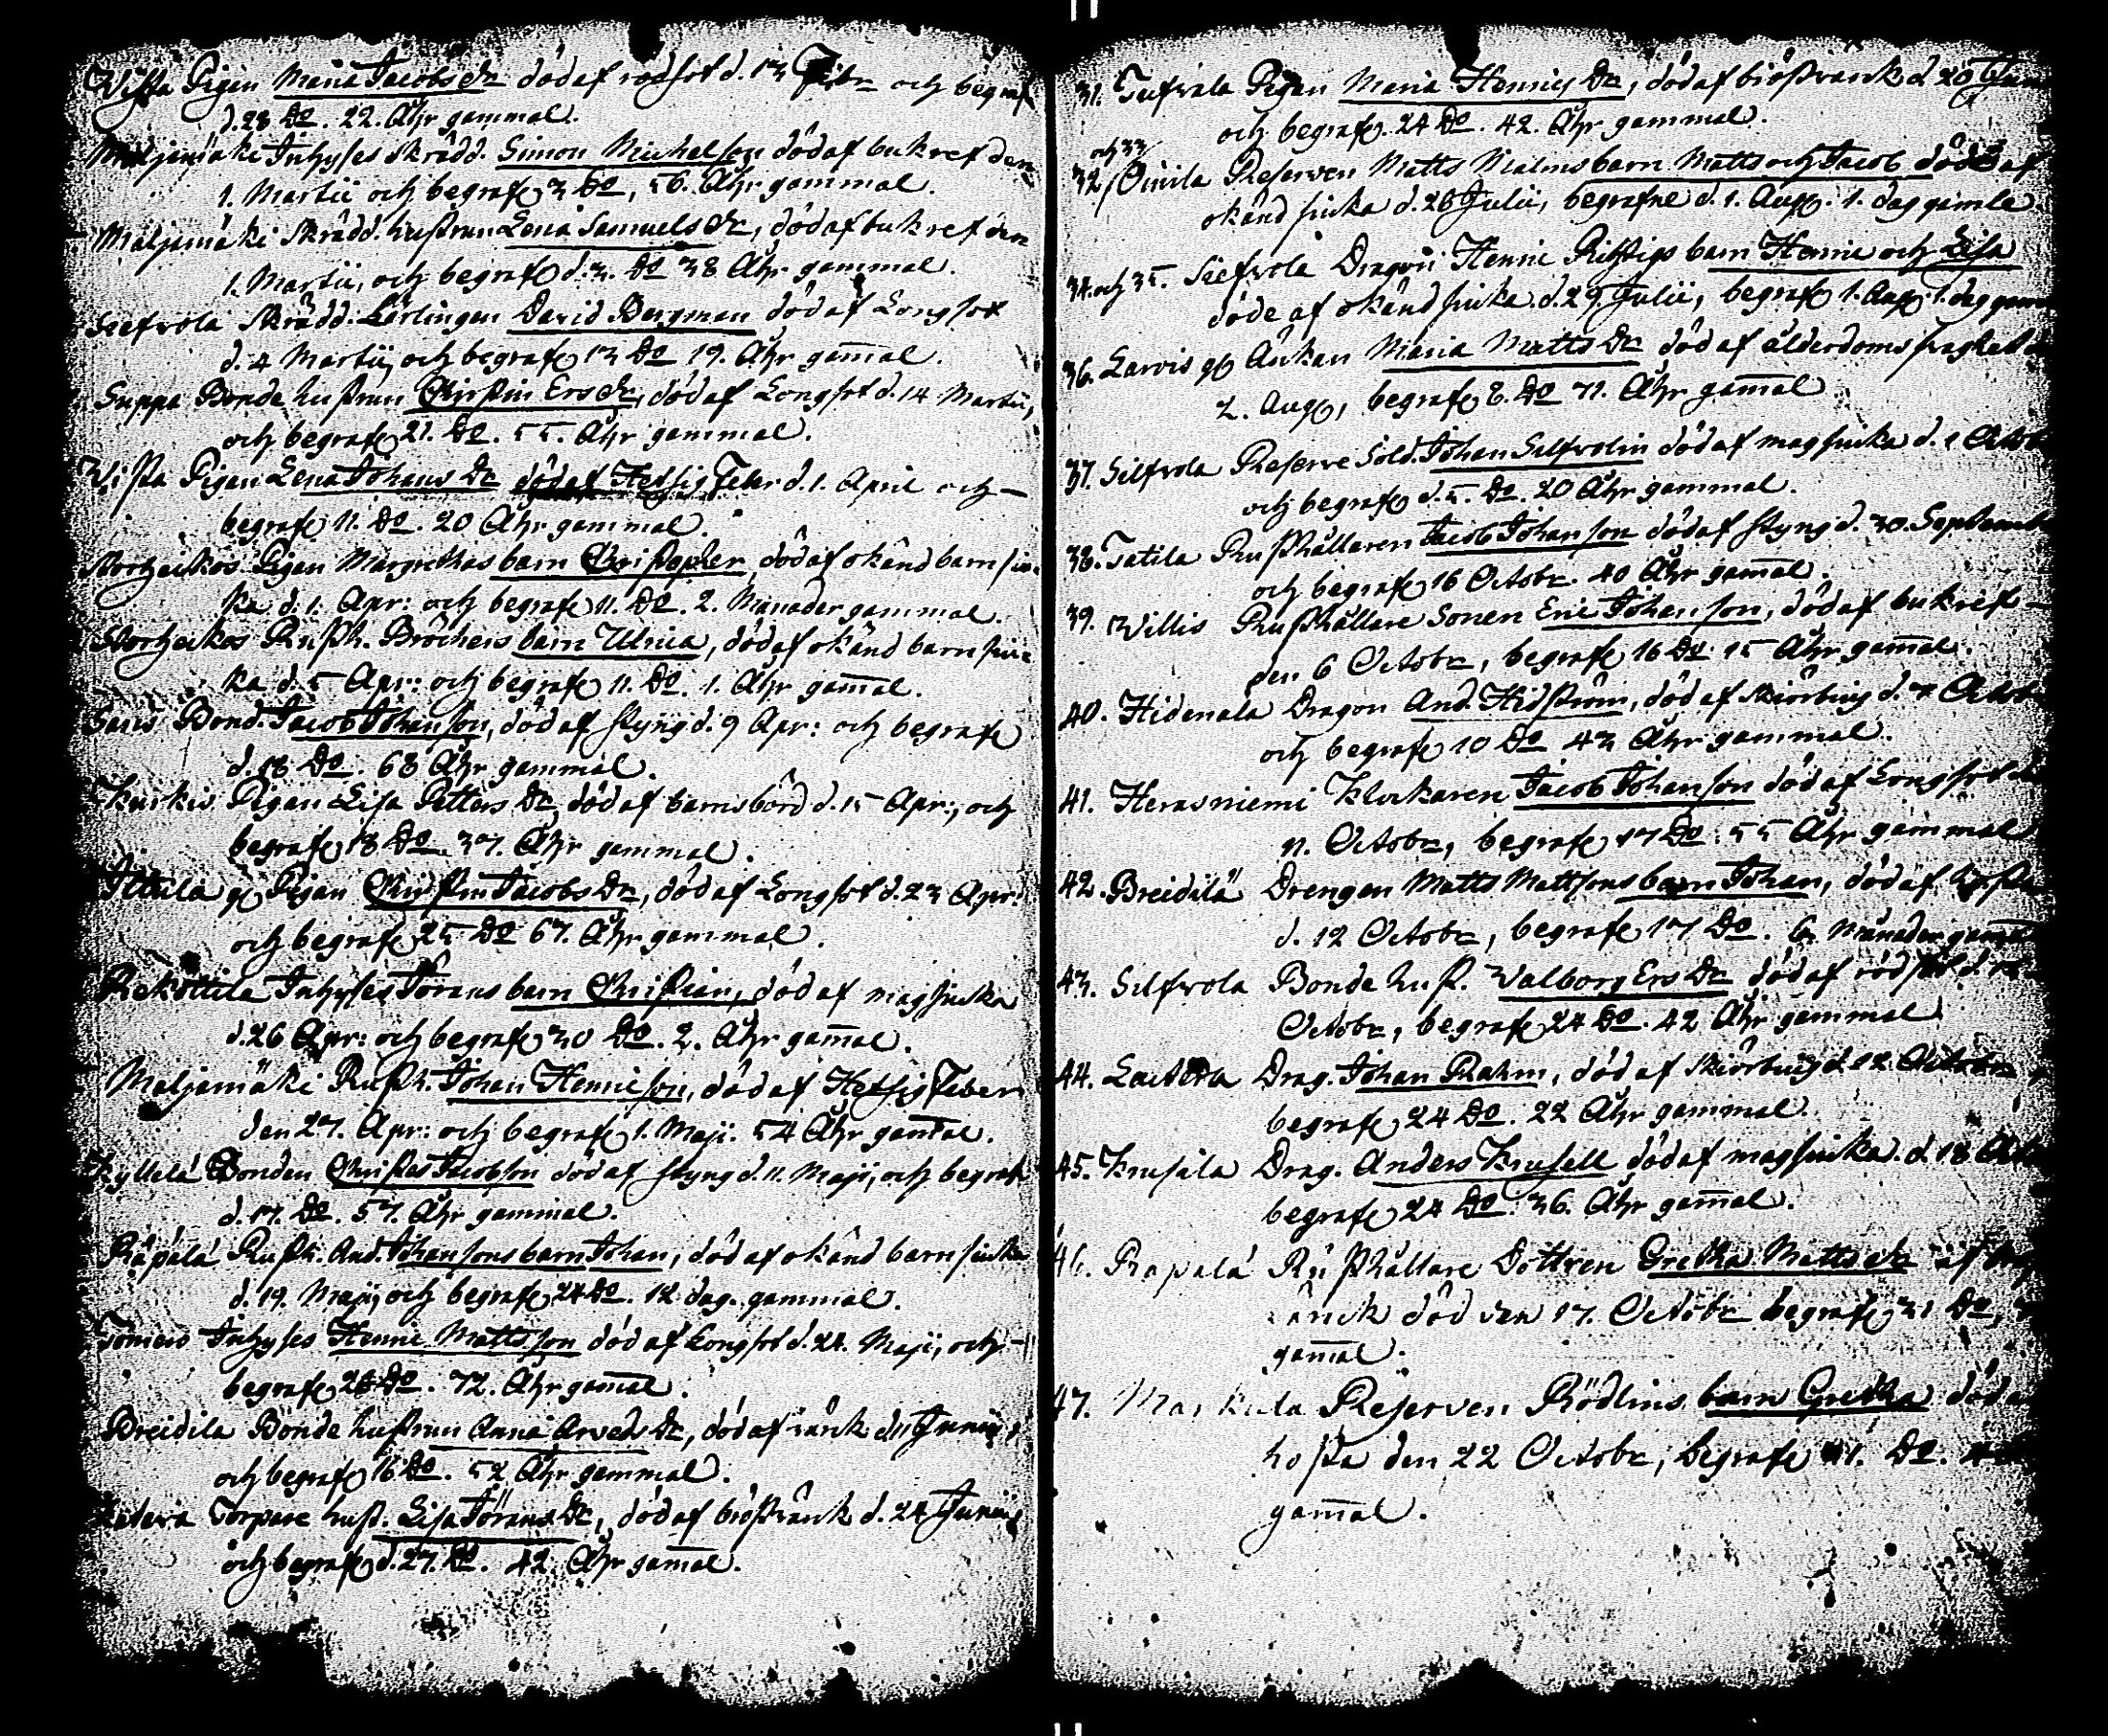 Wista Pigan Maria Jacobs dr död af rodsot d. 13 Febr och begrafn
d. 28 Do. 22. Åhr gammal.
Maljamäki Inhyses skrädd. Simon Michelson död af bukref den
1. Martii och begrafn 3 Do, 56. Åhr gammal.
Maljamäki Skrädd. hustrun Lena Samuels dr, död af bukref den
1. Martii, och begrafn d. 3. Do 38 Åhr gammal.
Siefvola Skrädd. Lärlingen David Bergman död af Longsot
d. 4 Martii, och begrafn 13 Do 19. Åhr gamal.
Suppa Bonde hustrun Christin Ers dr, död af Longsot d. 14 Martii,
och begrafn 21. Do. 55. Åhr gammal.
Wista Pigan Lena Johans Dr död af Hetsig Feber d. 1. April och
begrafn 11. Do. 20 Åhr gammal.
Stortzeikos Pigan Margrethas barn Christopher, död af okänd barnsiu-
ka d. 1. Apr: och begrafn 11. Do. 2. Månader gammal.
Stortzeikos Rusth. Bröchers barn Ulrica, död af okänd barnsiu-
ka d. 5 Apr: och begrafn 11. Do. 1. Åhr gamal.
Bond. Jacob Johanson, död af styng d. 9 Apr: och begrafn
d. 18 Do. 68 Åhr gammal.
Pigan Lisa Petters Dr, död af barnsbörd d. 15 Apr:, och
begrafn 18 Do. 37. Åhr gammal.
Ittala gl Pigan Christin Jacobs Dr, död af Longsot d. 23 Apr:
och begrafn 25 Do 67. Åhr gammal.
Rekottila Inhyses Jörans barn Christian, död af magsiuka
d. 26 Apr: och begrafn 30 Do. 2. Åhr gamal.
Maljamäki Rusth. Johan Hennieson, död af Hetsig Feber
den 27. Apr: och begrafn 1. Maji. 54 Åhr gamal.
Kyllelä Bonden Christer Jacobson död af styng d. 11. Maji, och begrafn
d. 17. Do. 57. Åhr gammal.
Räpälä Rusth. And. Johansons barn Johan, död af okänd barnsiuka
d. 19. Maji, och begrafn 24 Do. 12 dag. gammal.
Inhyses Hennie Mattsson död af Longsot d. 24. Maji, och
begrafn 28 Do. 72. Åhr gamal.
Breidila Bonde hustrun Anna Arveds Dr, död af ränk d. 11 Junii,
och begrafn 16 Do. 52 Åhr gammal.
Torpare hust. Lisa Jörans Dr, död af bröstränk d. 24 Junii,
och begrafn d. 27. Do. 42. Åhr gamal.
31. Tufvala Pigan Maria Hennies Dr, död af bröstränk d. 20
och begrafn 24 Do. 42. Åhr gammal.
och 33
32, Oinila Reserven Matts Malms barn Matts och Jacob döde af
okänd siuka d. 26 Julii, begrafne d. 1. Aug. 1. dag gamle
34. och 35. Siefvola Dragon Hennie Ristigs barn Hennie och Lisa
döde af okänd siuka d. 29 Julii, begrafn 1. Aug. 1. dag gam
36. Larvis gl Änkan Maria Matts Dr död af ålderdoms svaghet
2. Aug, begrafn 8. Do 71. Åhr gamal
37. Silfvola Reserve Sold. Johan Silfvolin död af magsiuka d. 2 Octob
och begrafn d. 5. Do. 20 Åhr gammal.
38. Tatila Rusthållaren Jacob Johanson död af styng d. 30. Septemb
och begrafn 16 Octobr. 40 Åhr gamal.
39. Willis Rusthållare Sonen Eric Johanson, död af bukref
den 6 Octobr, begrafn 16 Do 15 Åhr gamal.
40. Hidenala Dragon And. Hidström, död af skiörbiug d. 7 Octob
och begrafn 10 Do 43 Åhr gammal.
41. Herasniemi Klockaren Jacob Johanson död af Longsot
11. Octobr, begrafn 17 Do. 55 Åhr gammal
42. Breidilä Drengen Matts Mattsons barn Johan, död af hosta
d. 12 Octobr, begrafn 17 Do. 6 Månader gamal
43. Silfvola Bonde hust. Walborg Ers Dr död af rödsot d.
Octobr, begrafn 24 Do. 42 Åhr gammal
44. Drag. Johan Rahm, död af skiörbiug d. 12 Octobr
begrafn 24 Do. 22 Åhr gammal.
45. Krusala Drag. Anders Krusell död af magsiuka. d. 18 Oct
begrafn 24 Do. 36. Åhr gamal.
46. Rapala Rusthållare Dottren Gretha Matts dr af
ränck död den 17. Octobr begrafn 31 Do,
gamal.
47. Reserven Rödlins barn Gretha död a
hosta den 22 Octobr, begrafn 31. Do.
gamal.